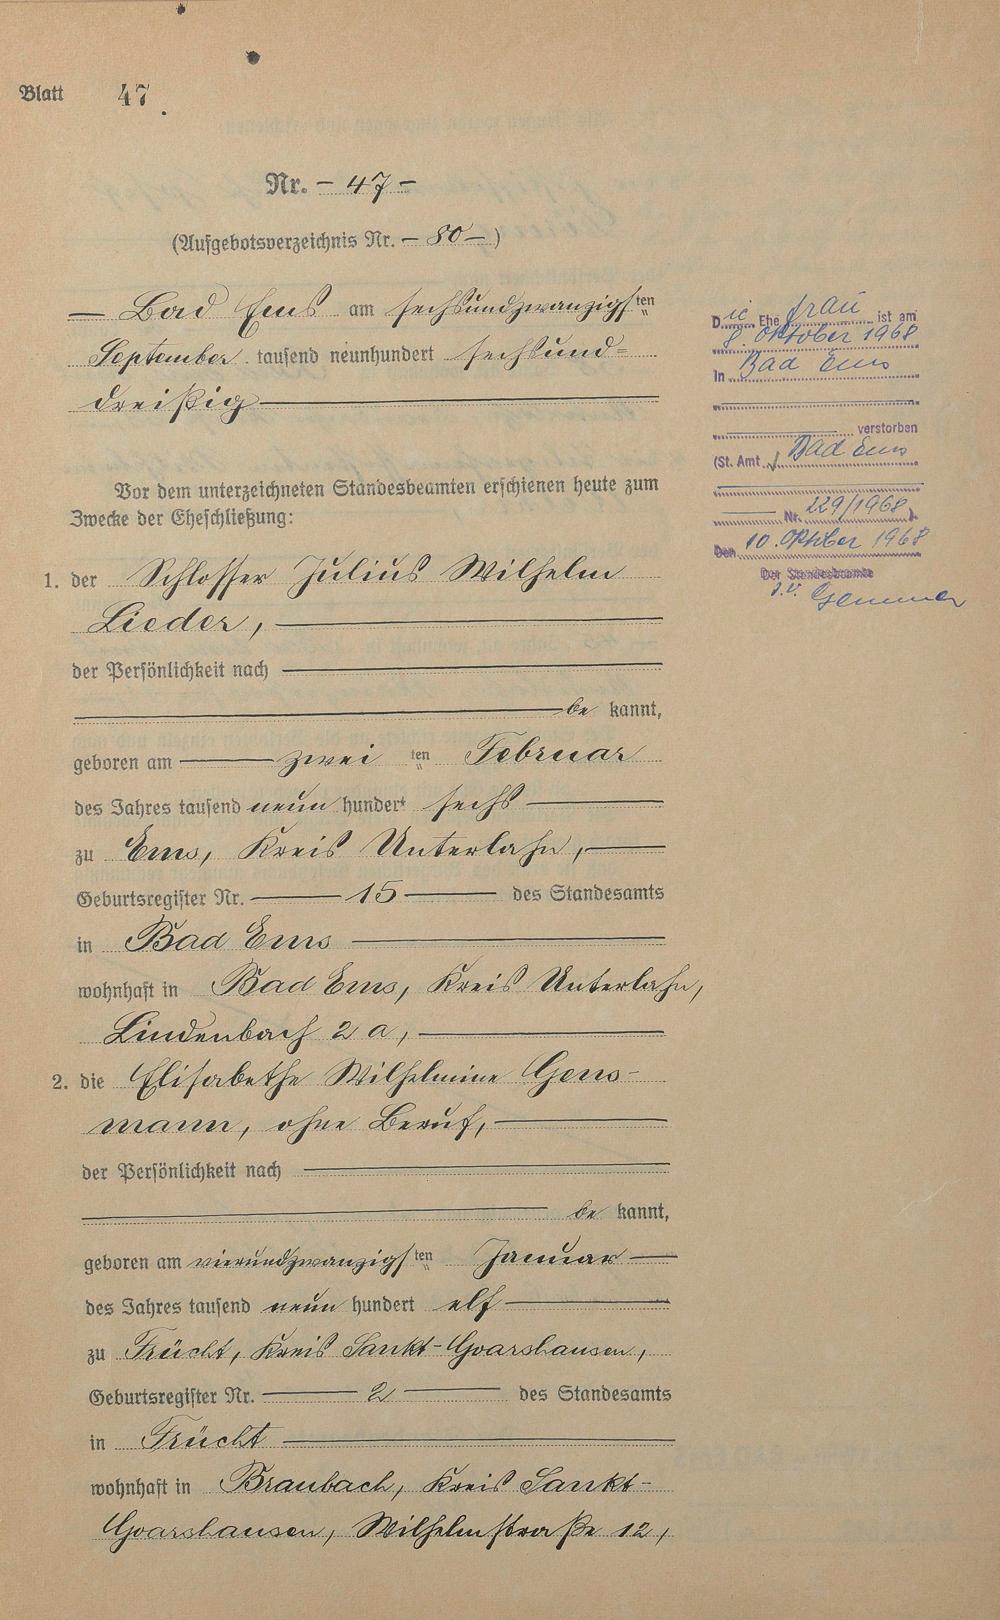 Blatt 47.
Nr. – 47 –
(Aufgebotsverzeichnis Nr. – 80 – )
— Bad Ems am sechsundzwanzigsten
September tausend neunhundert sechsund=
dreißig
Vor dem unterzeichneten Standesbeamten erschienen heute zum
Zwecke der Eheschließung:
1. der Schlosser Julius Wilhelm
Lieder,
der Persönlichkeit nach
be kannt,
geboren am zwei ten Februar
des Jahres tausend neun hundert sechs
zu Ems, Kreis Unterlahn,
Geburtsregister Nr. 15 des Standesamts
in Bad Ems
wohnhaft in Bad Ems, Kreis Unterlahn,
Lindenbach 2 a,
2. die Elisabethe Wilhelmine Gens-
mann, ohne Beruf,
der Persönlichkeit nach
be kannt,
geboren am vierundzwanzigsten Januar
des Jahres tausend neun hundert elf
zu Frücht, Kreis Sankt-Goarshausen,
Geburtsregister Nr. 2 des Standesamts
in Frücht
wohnhaft in Braubach, Kreis Sankt-
Goarshausen, Wilhelmstraße 12,
Die Ehe frau ist am
8. Oktober 1968
in Bad Ems
verstorben
(St. Amt Bad Ems
Nr. 229/1968).
Den 10. Oktober 1968
Der Standesbeamte
I.V.